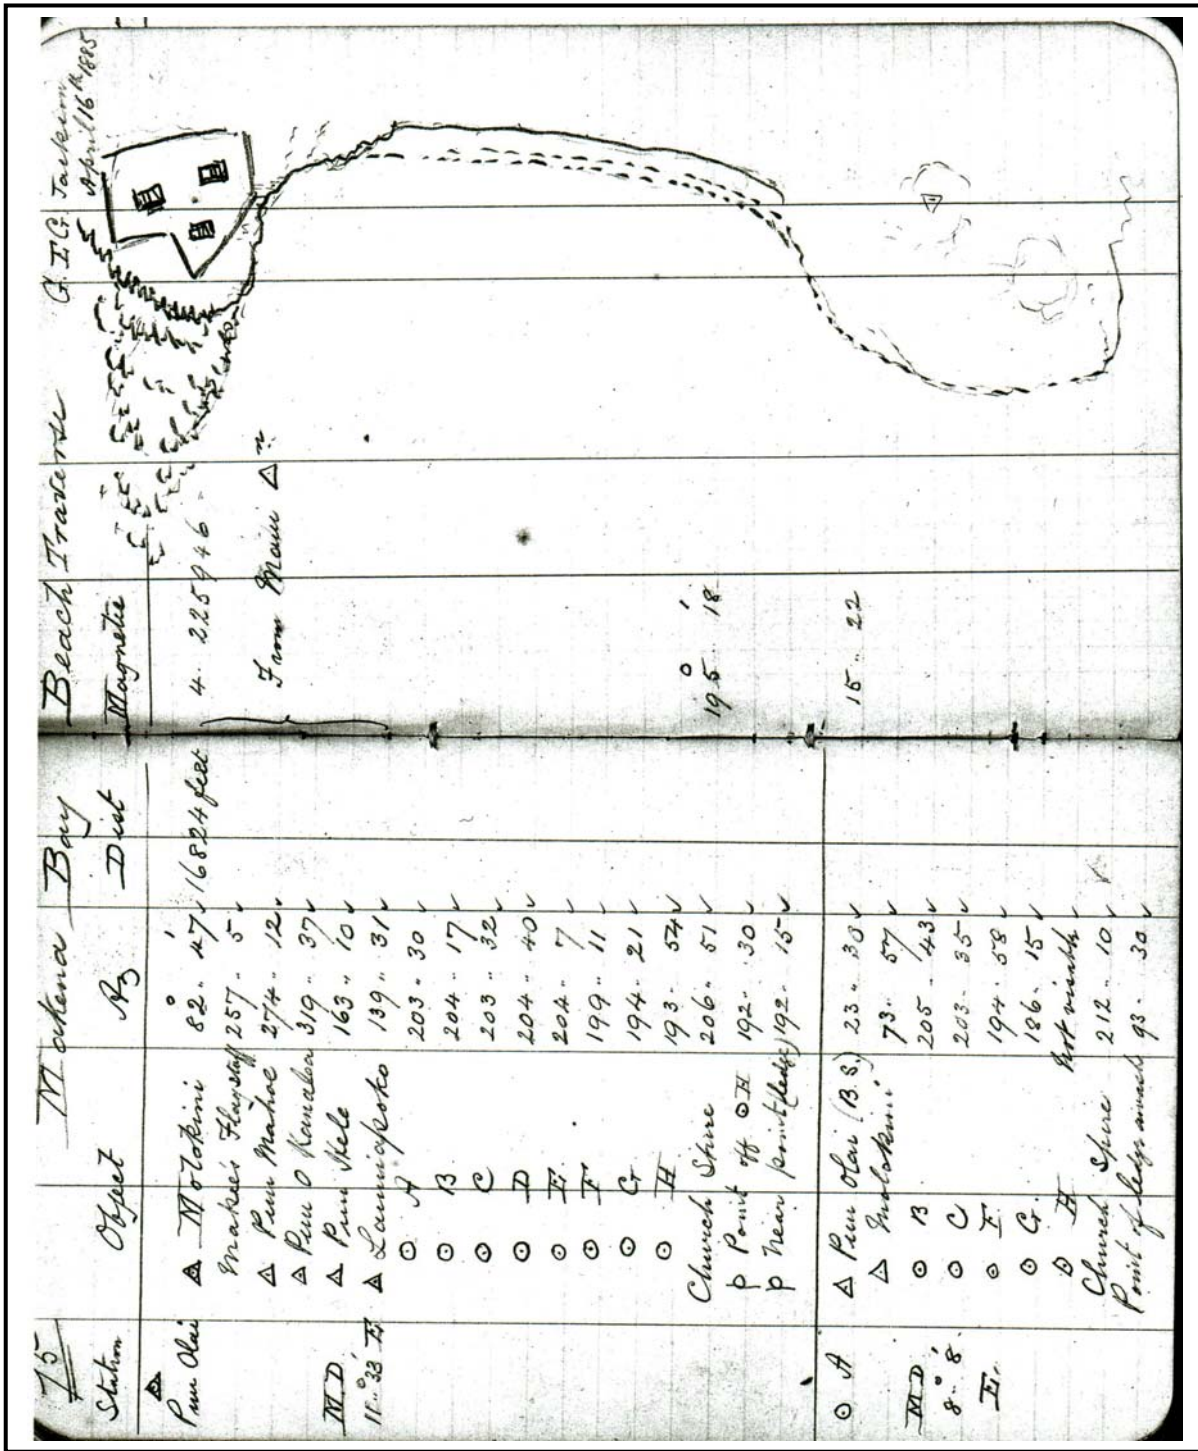 75 Makena Bay Beach Traverse G. E. G. Jackson
April 16th 1885
Station Object Az Dist Magnetic
△ Puu Olai △ Molokini 82° 47' ✓ 16824 feet 4. 225946
Makee's Flagstaff 257 " 5 ✓
△ Puu Mahoe 274 " 12 ✓ From Main △n
△ Puu O Kanaloa 319 " 37 ✓
M D △ Puu Hele 163 " 10 ✓
11° 33' E △ Launiupoko 139 " 31 ✓
⊙ A 203 " 30 ✓
⊙ B 204 " 17 ✓
⊙ C 203 " 32 ✓
⊙ D 204 " 40 ✓
⊙ E 204 " 7 ✓
⊙ F 199 " 11 ✓
⊙ G 194 " 21 ✓
⊙ H 193 " 54 ✓
Church Spire 206 " 51 ✓ 195° 18'
p Point off ⊙ H 192 " 30 ✓
p Near point (ledge) 192 " 15 ✓
⊙ A △ Puu Olai (B.S.) 23 " 38 ✓ 15 " 22
△ Molokini 73 " 57 ✓
M D ⊙ B 205 " 43 ✓
8° 8' ⊙ C 203 " 35 ✓
E. ⊙ F 194 " 58 ✓
⊙ G 186 " 15 ✓
⊙ H Not visible
Church Spire 212 " 10 ✓
Point of ledge 93 " 30 ✓